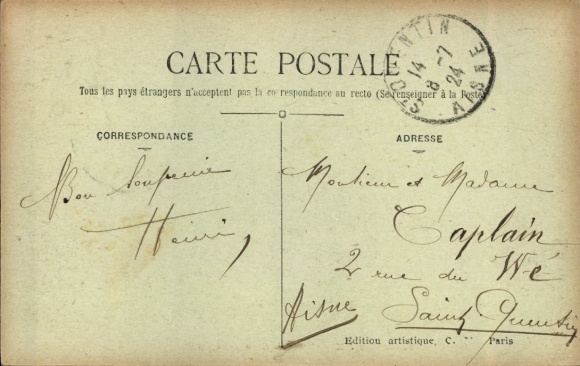 CARTE POSTALE
Tous les pays étrangers n'acceptent pas la correspondance au recto (Se renseigner à la Poste)
CORRESPONDANCE
Bon
Henri
ADRESSE
Monsieur et Madame
Caplain
2 rue du Wé
Saint Quentin
Aisne
Edition artistique, C. Paris
ST QUENTIN
14
8 -7
24
AISNE